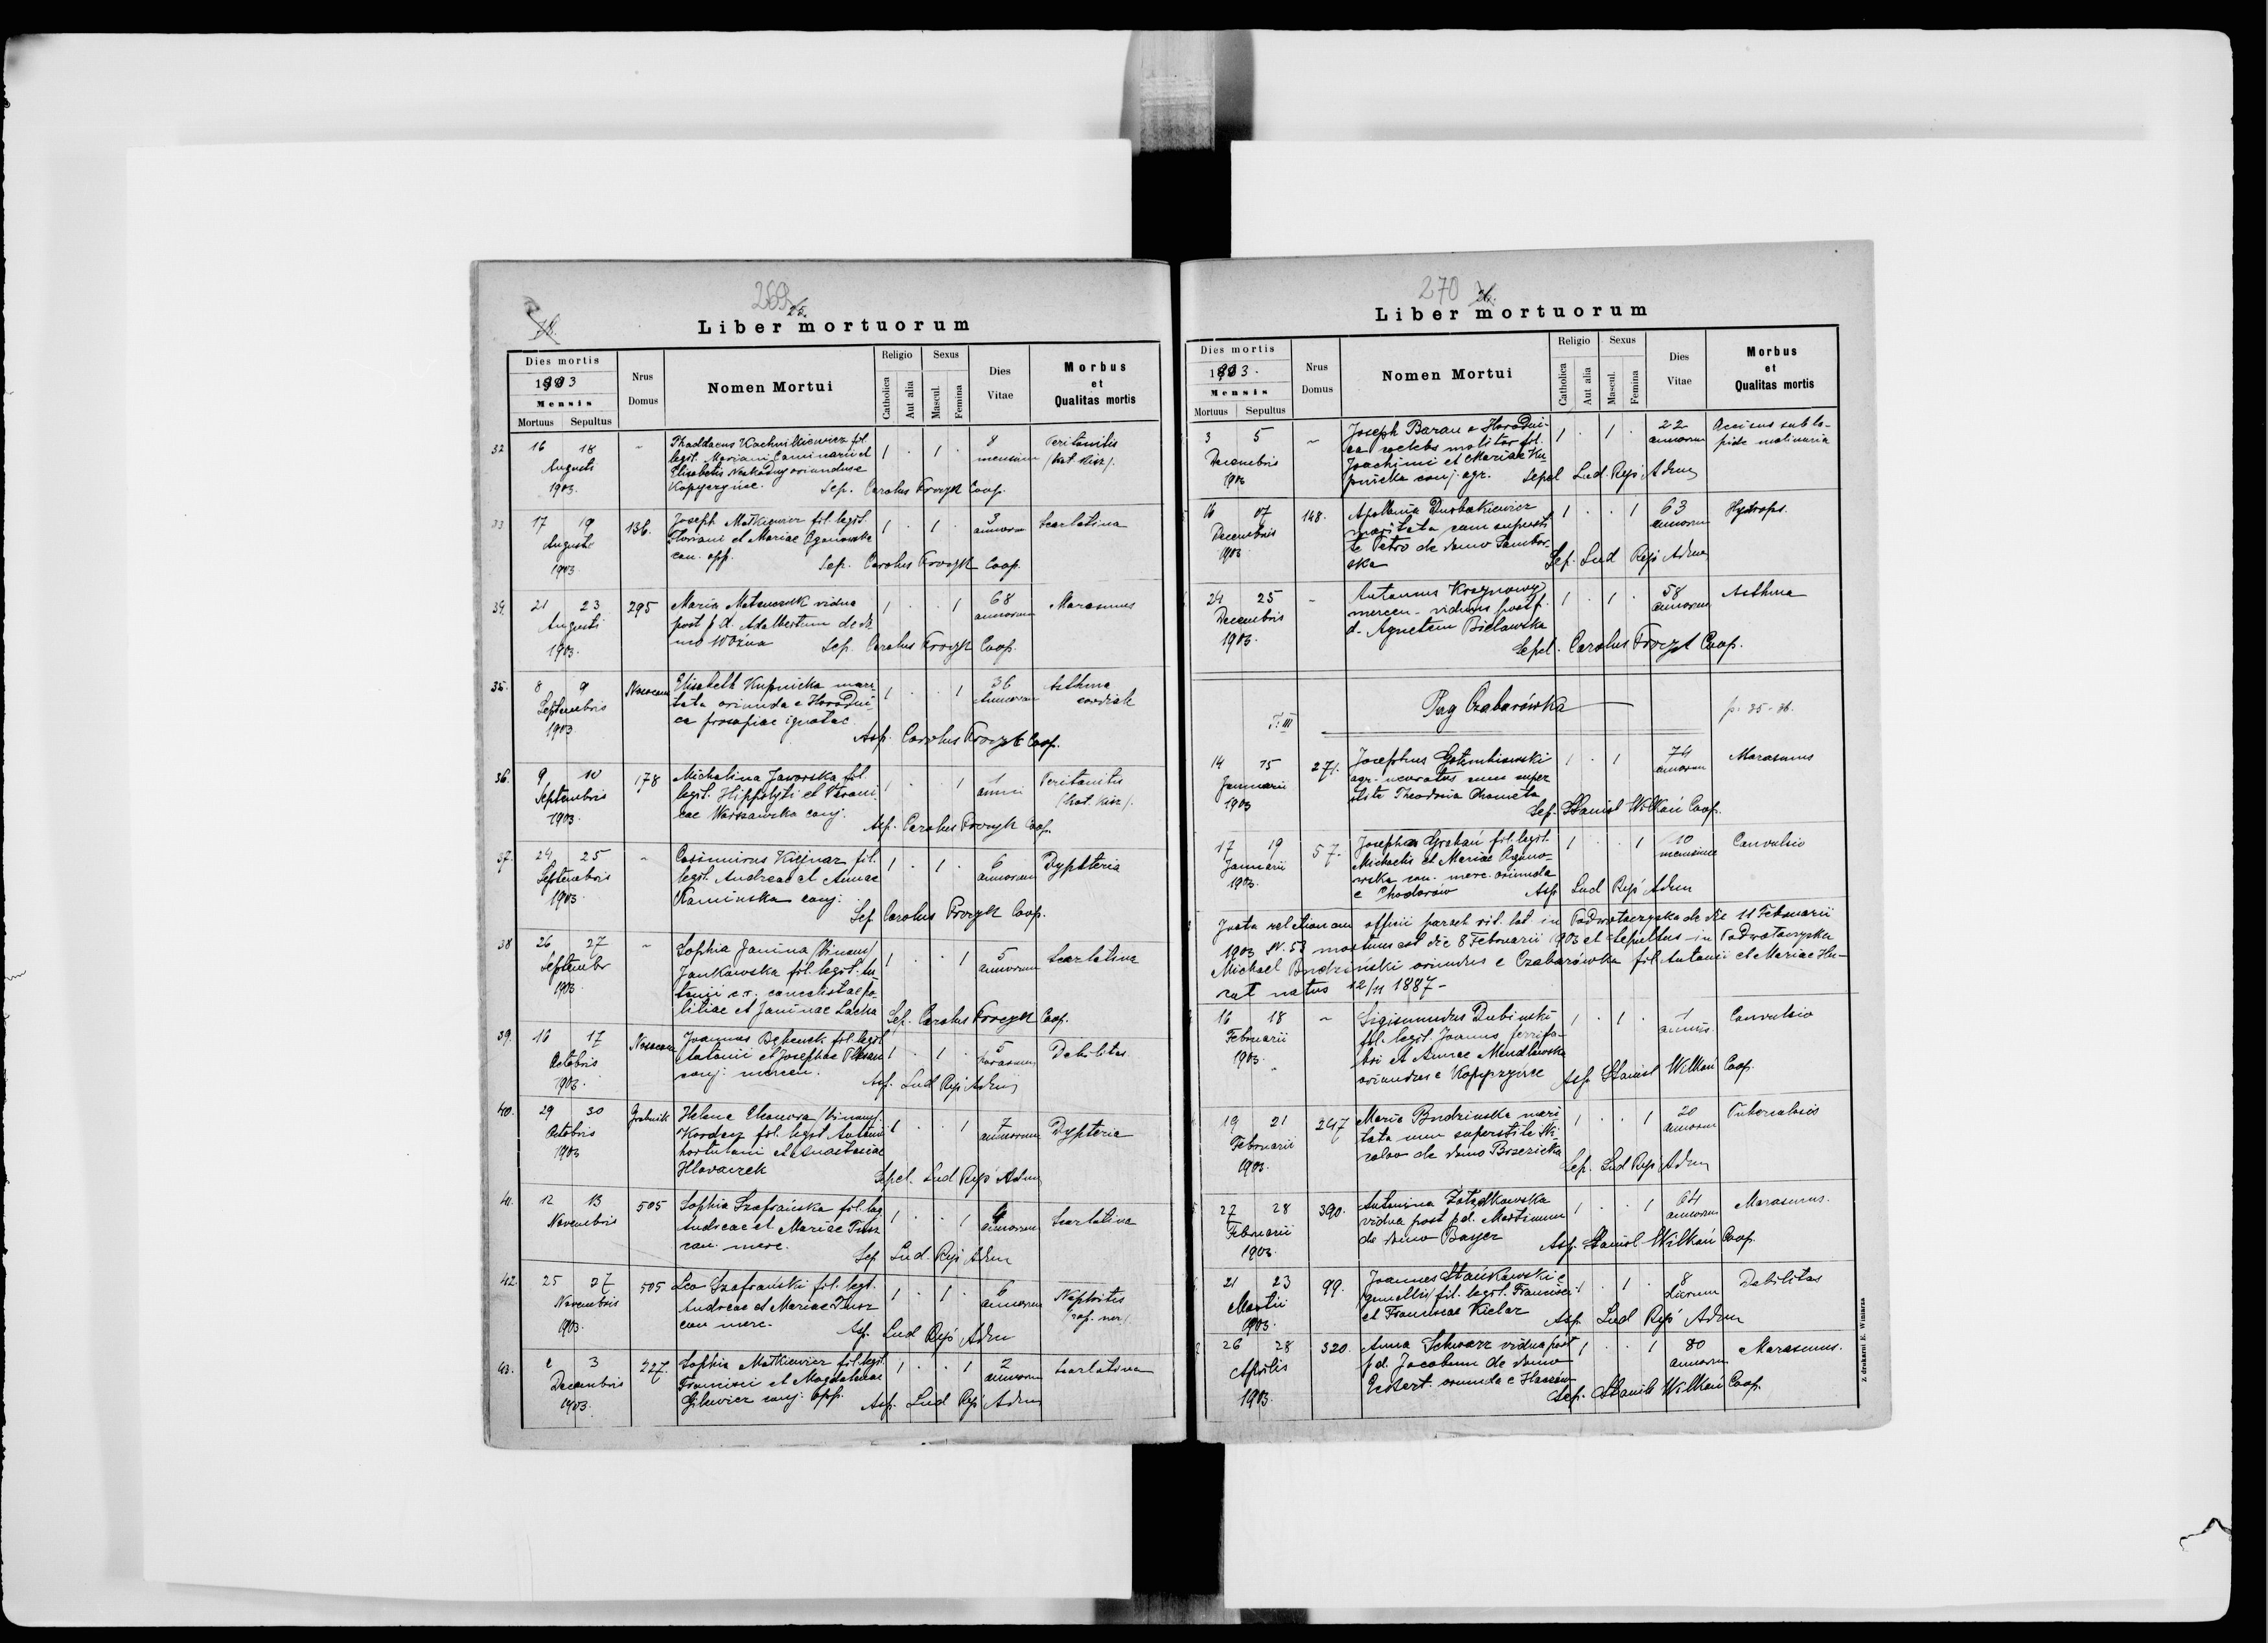 269
25.
Liber mortuorum
Dies mortis
1903
Mensis
Mortuus Sepultus
Nrus Domus
Nomen Mortui
Religio
Catholica
Aut alia
Sexus
Mascul.
Femina
Dies Vitae
Morbus et Qualitas mortis
32 16 18 Augusti 1903.
Thaddaeus fil.
legit. Mariani Caminarii et
Elisabethi oriundus e
Kopyczyńce. Sep. Carolus Procyk Coop.
1 . 1 . 8 mensium Peritonitis
33 17 19 Augusti 1903 136.
Joseph Matkiewicz fil. legit.
Floriani et Mariae Oganowska
con. opp. Sep. Carolus Procyk Coop.
1 . 1 . 3 annorum Scarlatina
34. 21 23 Augusti 1903. 295
Maria vidua
post p d. Adalbertum de do
mo Woźna Sep. Carolus Procyk Coop.
1 . . 1 68 annorum Marasmus
35. 8 9 Septembris 1903
Elisabeth Kupnicka mari
tata oriunda e Horodni
ca prosapiae ignotae
Asp. Carolus Procyk Coop.
1 . . 1 36 Annorum Asthma cordiale
36. 9 10 Septembris 1903. 178
Michalina Jaworska fil.
legit. Hippolyti et Veroni
cae Warszawska conj.
Asp. Carolus Procyk Coop.
1 . . 1 1 anni Peritonitis
37. 24 25 Septembris 1903
Casimirus Kiejnar fil.
legit. Andreae et Annae
Kaminska conj.
Sep. Carolus Procyk Coop.
1 . 1 . 6 annorum Dyphteria
38 26 27 Septembr 1903
Sophia Janina /binom/
Jankowska fil. legit. An
tonii c.r. cancelistae po
litiae et Janinae Lacha
Sep. Carolus Procyk Coop.
1 . . 1 5 annorum Scarlatina
39. 16 17 Octobris 1903.
Joannes fil. legit
Antonii et Josephae
conj. mercen.
Asp. Lud Ryś Adm
1 . 1 . 5 horarum Debilitas
40. 29 30 Octobris 1903
Helena Eleonora /binom/
Kordasz fil. legit. Antonii
hortulani et Anastasiae
Hlavaczek
Sepel. Lud Ryś Adm
1 . . 1 7 annorum Dyphteria
41. 12 13 Novembris 505
Sophia Szafrańska fil. leg
Andreae et Mariae
con. merc.
Sep. Lud. Ryś Adm
1 . . 1 4 annorum Scarlatina
42. 25 27 Novembris 1903. 505
Leo Szafrański fil. legt.
Andreae et Mariae
con merc.
Asp. Lud Ryś Adm
1 . 1 . 6 annorum Nephritis
43. 2 3 Decembris 1903. 227.
Sophia Matkiewicz fil. legit.
Francisci et Magdalenae
Gilewicz conj. opp.
Asp. Lud Ryś Adm
1 . . 1 2 annorum Scarlatina
270
26.
Liber mortuorum
Dies mortis
1903.
Mensis
Mortuus Sepultus
Nrus Domus
Nomen Mortui
Religio
Catholica
Aut alia
Sexus
Mascul.
Femina
Dies Vitae
Morbus et Qualitas mortis
3 5 Decembris 1903
Joseph Baran e Horodni
ca coelebs molitor fil.
Joachimi et Mariae Ku
pnicka conj. agr. Sepel Lud. Ryś Adm
1 . 1 . 22 annorum Occisus sub la-
pide molinaria
16 17 Decembris 1903 148.
Apollonia Durbakiewicz
maritata cum supersti
te Petro de domo Sambor
ska Sep. Lud Ryś Adm
1 . . 1 63 annorum Hydrops.
24 25 Decembris 1903.
Antonius
mercen. viduus post p.
d. Agnetem Bielawska
Sepel. Carolus Procyk Coop.
1 . 1 . 58 annorum Asthma
T. III Pag Czabarówka p. 35-36.
14 15 Januarii 1903 271.
Josephus Gołembiowski
agr. uxoratus cum super
stite Theodosia
Sep. Stanisl Wilkoń Coop.
1 . 1 74 annorum Marasmus
17 19 Januarii 1903. 57.
Josepha Grabań fil. legit.
Michaelis et Mariae Ogano-
wska con. merc. oriunda
e Chodorów Asp Lud Ryś Adm
1 . . 1 10 mensium Convulsio
Juxta relationem officii paroch rit. lat in Podwołoczyska de die 11 Februarii
1903 N. 53 mortuus est die 8 Februarii 1903 et sepultus in Podwołoczyska
Michael Budziński oriundus e Czabarówka fil. Antonii et Mariae Hu-
cał natus 12/11 1887-
16 18 Februarii 1903.
Sigismundus Dubinski
fil. legit. Joannis ferrifa-
bri et Annae Mendlowska
oriundus e Kopyczyńce Asp. Stanisl Wilkoń Coop.
1 . 1 . 1 annus. Convulsio
19 21 Februarii 1903. 247
Maria Budzinska mari
tata cum superstite Ni-
colao de domo Brzezicka
Sep. Lud Ryś Adm
1 . . 1 20 annorum Tuberculosis
27 28 Februarii 1903. 390.
Antonina Żołądkowska
vidua post p d. Martinum
de domo Bayer
Asp. Stanisl Wilkoń Coop.
1 . . 1 64 annorum Marasmus.
21 23 Martii 1903. 99.
Joannes Stańkowski e
gemellis fil. legit. Francisci
et Franciscae Kielar
Asp Lud Ryś Adm
1 . 1 . 8 dierum Debilitas
26 28 Aprilis 1903. 320.
Anna Schwarz vidua post
p d. Jacobum de domo
Eckert. oriunda e
Sep. Stanisl Wilkoń Coop.
1 . . 1 80 annorum Marasmus.
Z drukarni E. Winiarza